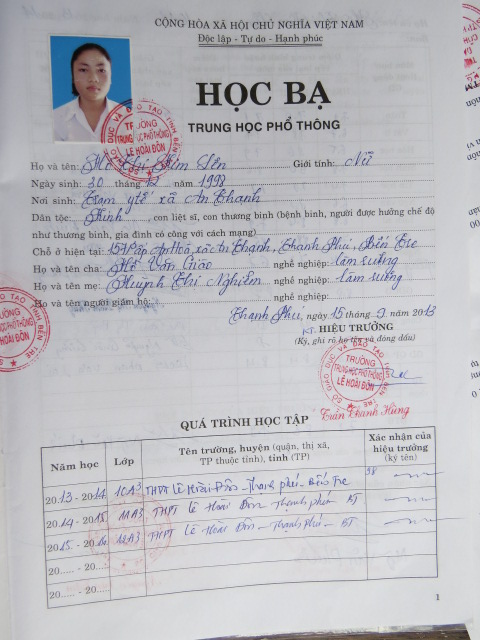 CỘNG HÒA XÃ HỘI CHỦ NGHĨA VIỆT NAM
Độc lập - Tự do - Hạnh phúc
HỌC BẠ
TRUNG HỌC PHỔ THÔNG
TRƯỜNG
TRUNG HỌC PHỔ THÔNG
LÊ HOÀI ĐÔN
Họ và tên: Hồ Thị Kim Yến Giới tính: Nữ
Ngày sinh: 30 tháng 12 năm 1998
Nơi sinh: Trạm y tế xã An Thạnh
Dân tộc: Kinh, con liệt sĩ, con thương binh (bệnh binh, người được hưởng chế độ
như thương binh, gia đình có công với cách mạng)
Chỗ ở hiện tại: ấp An Hòa, xã An Thạnh, Thạnh Phú, Bến Tre
Họ và tên cha: Hồ Văn Giào nghề nghiệp: làm ruộng
Họ và tên mẹ: Huỳnh Thị Nghiễm nghề nghiệp: làm ruộng
Họ và tên người giám hộ: nghề nghiệp:
Thạnh Phú, ngày 15 tháng 9 năm 2013
KT. HIỆU TRƯỞNG
(Ký, ghi rõ họ tên và đóng dấu)
SỞ GIÁO DỤC VÀ ĐÀO TẠO TỈNH BẾN TRE
TRƯỜNG
TRUNG HỌC PHỔ THÔNG
LÊ HOÀI ĐÔN
Trần Thanh Hùng
QUÁ TRÌNH HỌC TẬP
Năm học Lớp Tên trường, huyện (quận, thị xã, TP thuộc tỉnh), tỉnh (TP) Xác nhận của hiệu trưởng (ký tên)
2013 - 2014 10A3 THPT Lê Hoài Đôn - Thạnh phú - Bến Tre
2014 - 2015 11A3 THPT Lê Hoài Đôn - Thạnh phú - BT
2015 - 2016 12A3 THPT Lê Hoài Đôn - Thạnh phú - BT
20..... - 20.....
20..... - 20.....
1